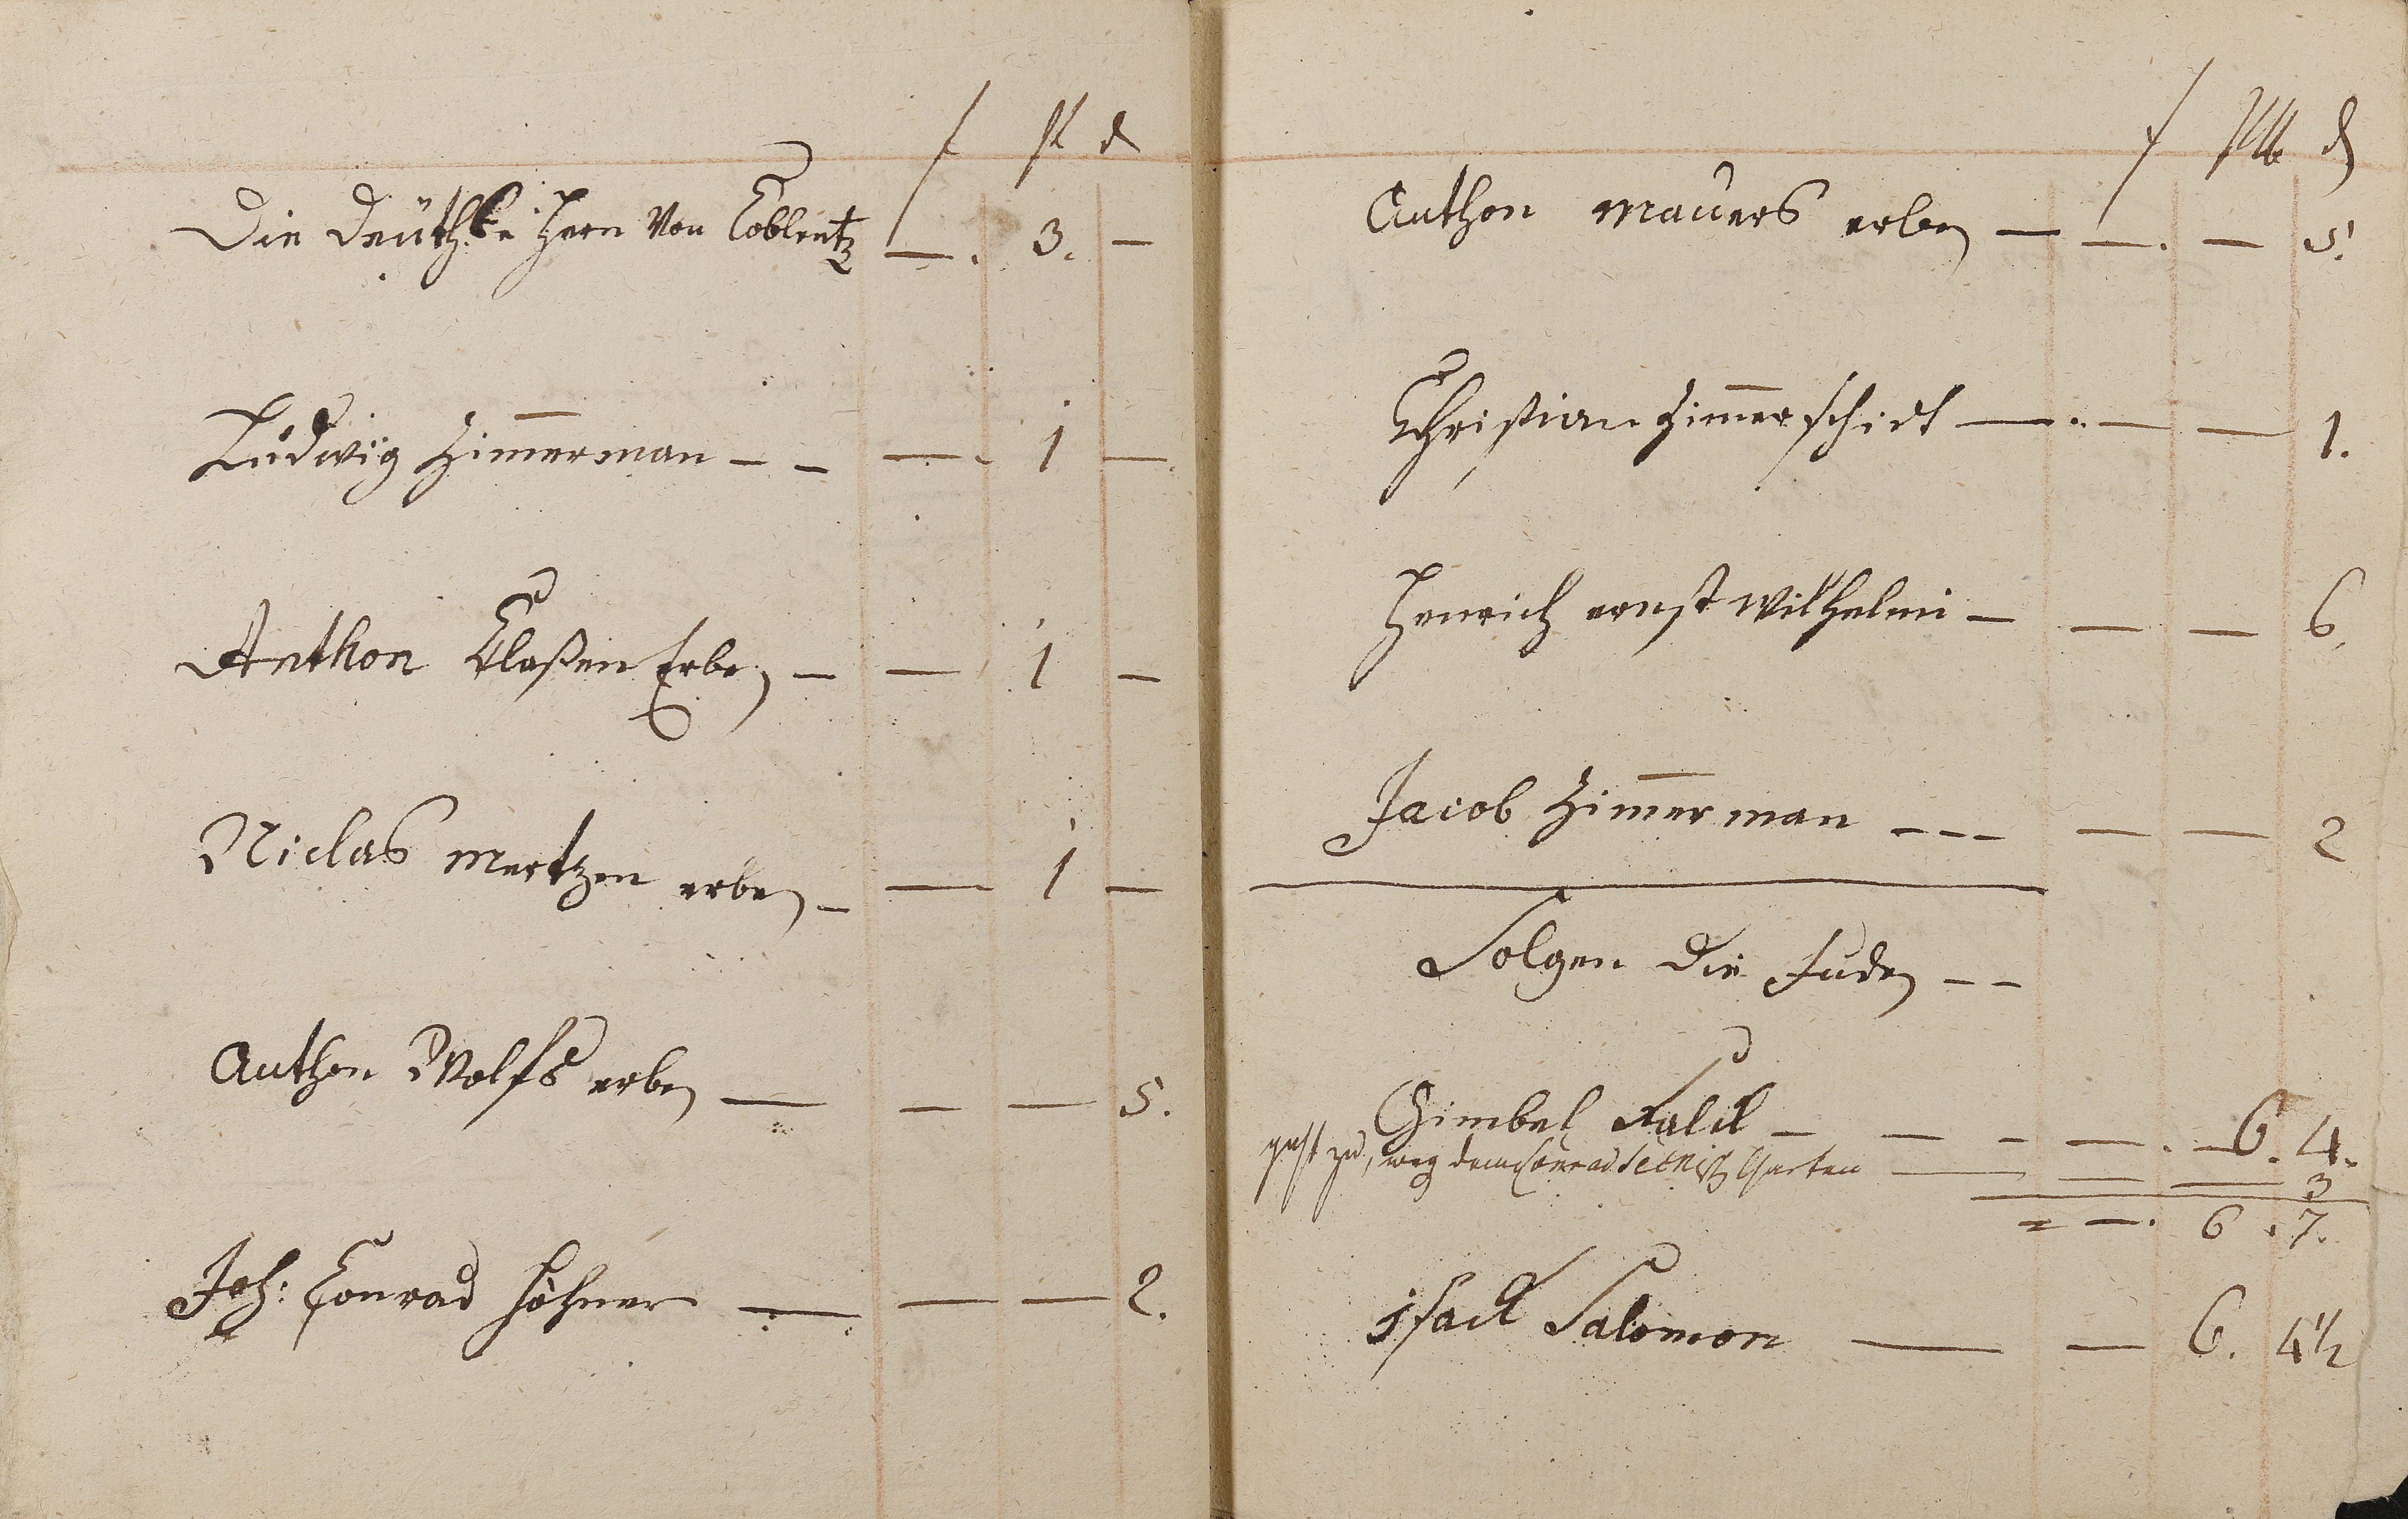 f alb d
Die Deütsche Hern Von Coblentz — . 3. —
Ludwig Zimmerman – – — . 1 —
Anthon Claßen Erben – — 1 —
Niclas Mertzen erben – — 1 —
Anthon Wolfs erben — — — 5.
Joh: Conrad Höhner — — — 2.
f Alb d
Anthon Mauers erben — — . — 5.
Christian Zimerschidt — . — — 1.
Henrich ernst Wilhelmi – — — 6.
Jacob Zimerman – – – — — 2
Folgen die Juden – –
Gimbel — – — . — 6. 4.
geht zu, weg dem Conrad Garten — — — 3
= — . 6 . 7.
isack Salomon — — 6. 4½